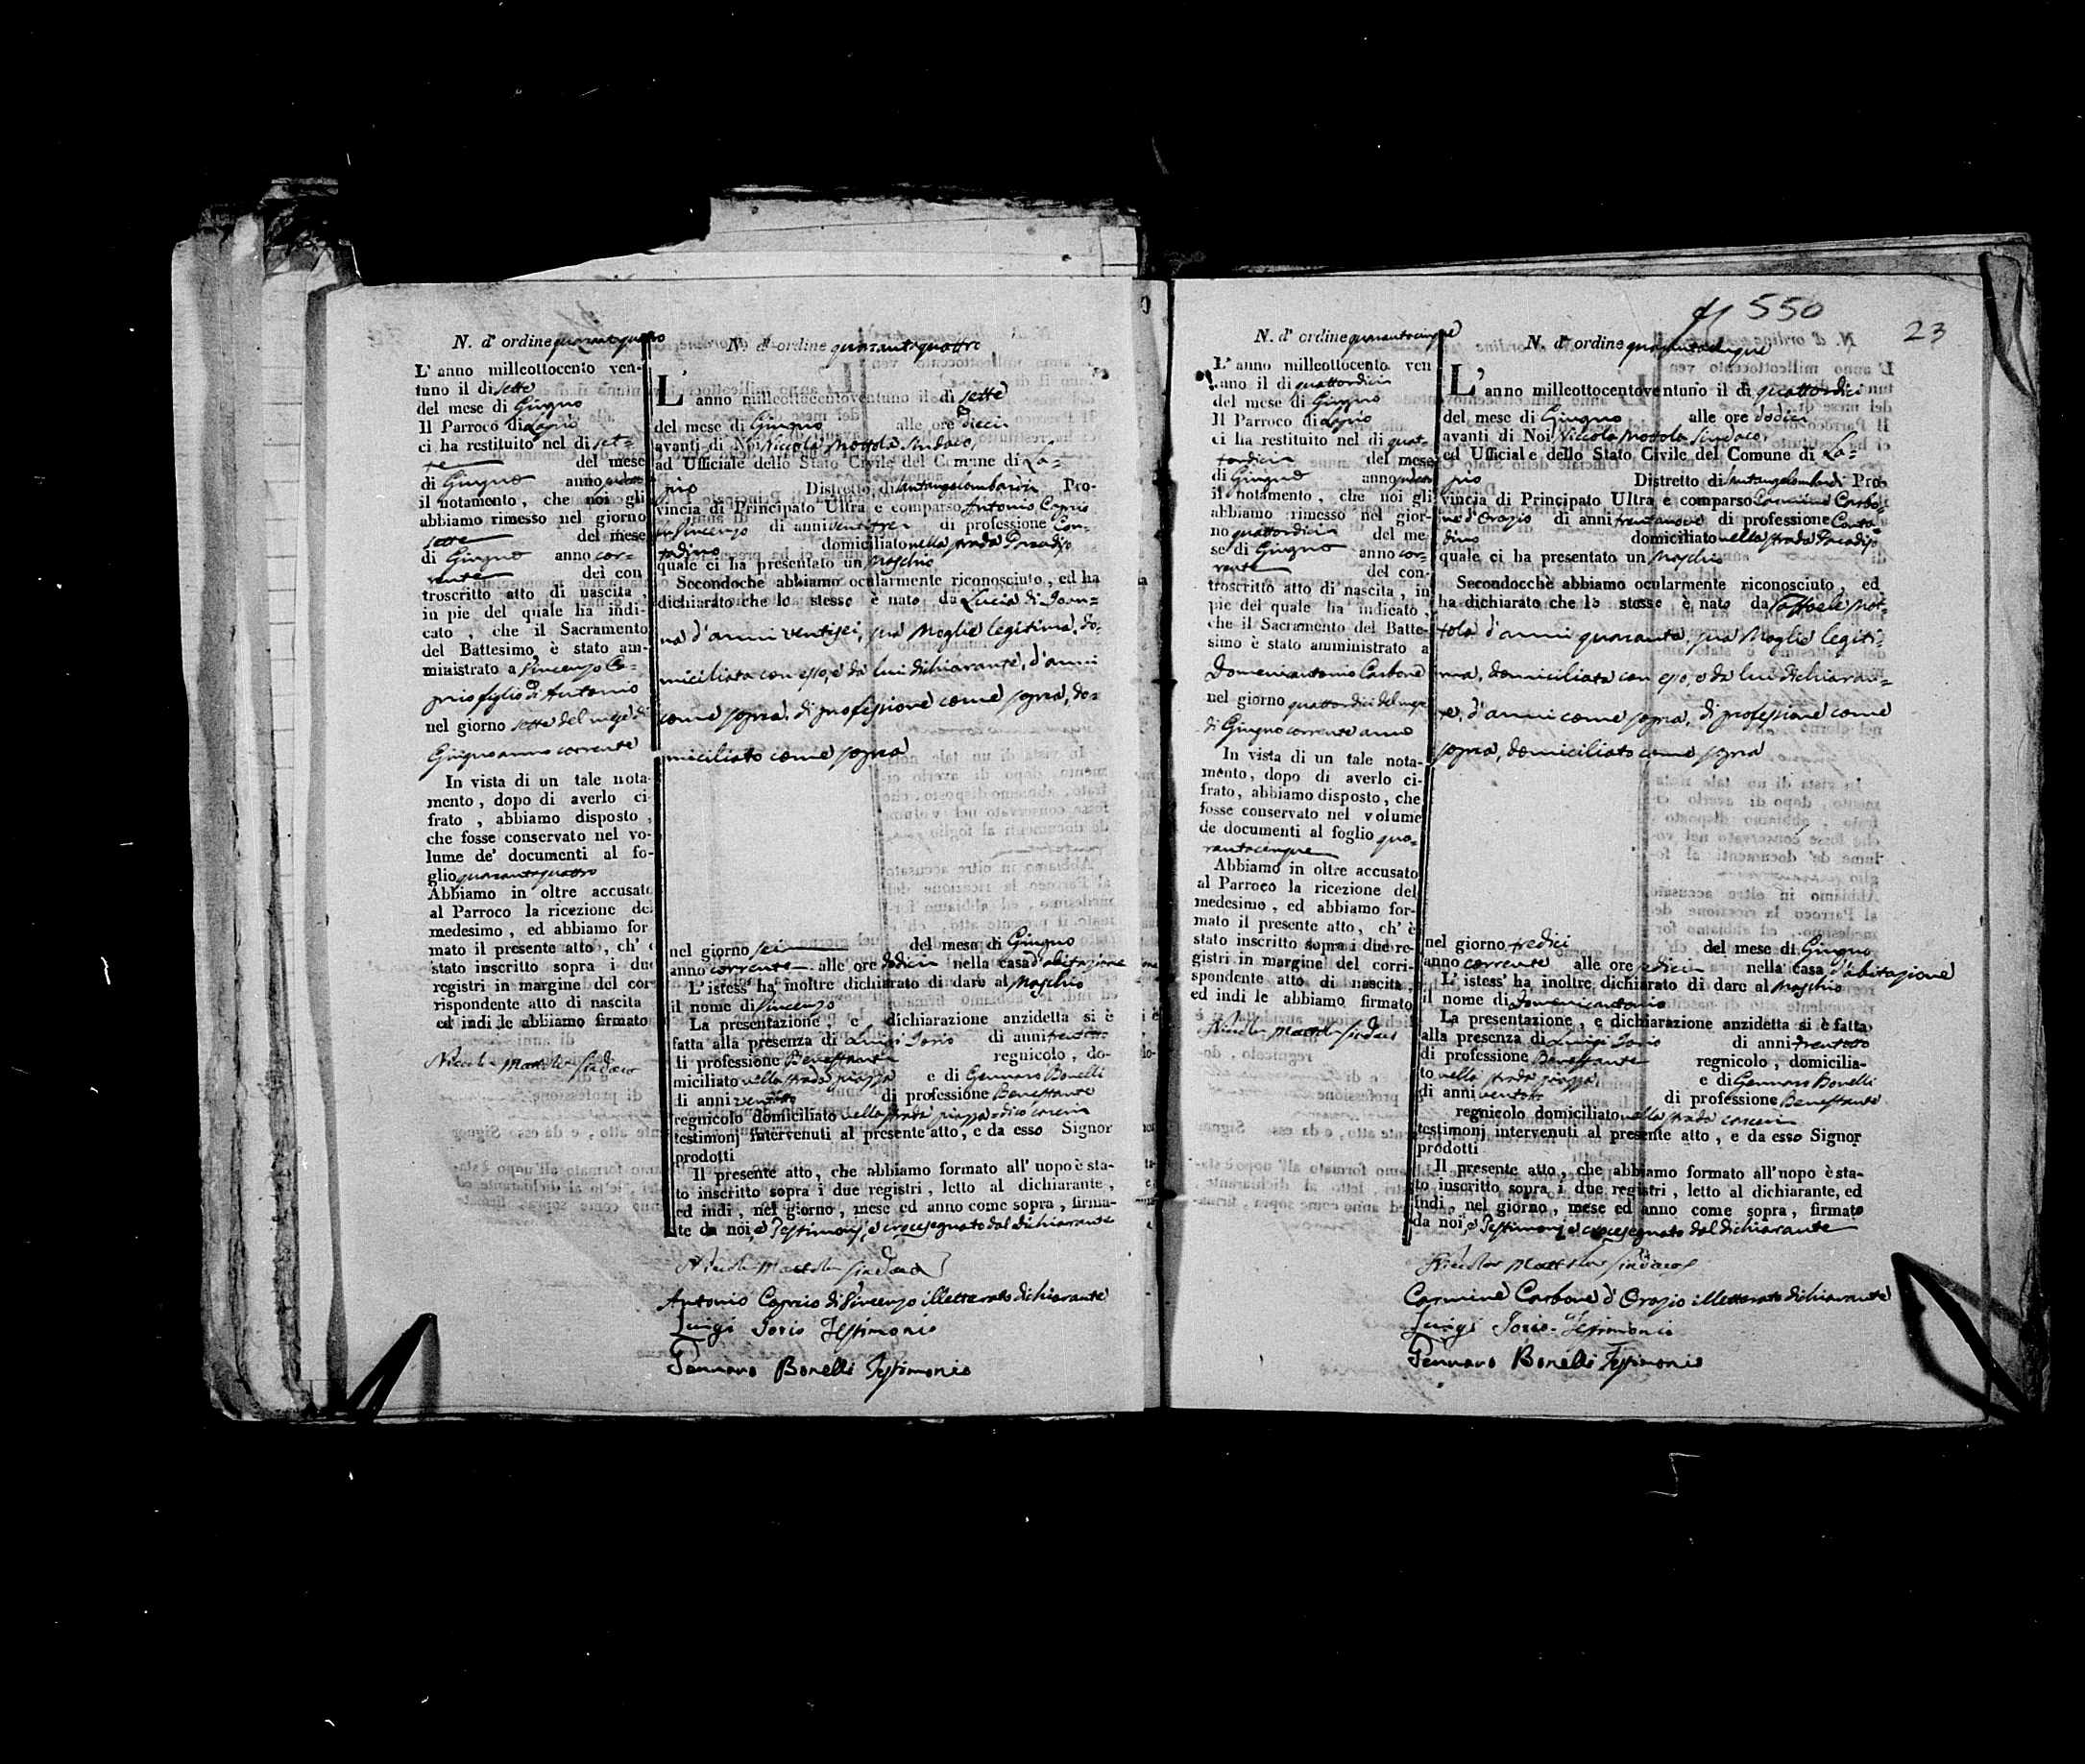 N. d' ordine quarantaquattro
L' anno milleottocento ven-
tuno il di sette
del mese di Giugno
Il Parroco di Lapio
ci ha restituito nel di set-
te del mese
di Giugno anno
il notamento, che noi gli
abbiamo rimesso nel giorno
sette del mese
di Giugno anno cor-
rente del con
troscritto atto di nascita,
in pie del quale ha indi-
cato, che il Sacramento
del Battesimo è stato am-
ministrato a Vincenzo Ca-
prio figlio di Antonio
nel giorno sette del mese di
Giugno anno corrente
In vista di un tale nota-
mento, dopo di averlo ci-
frato, abbiamo disposto,
che fosse conservato nel vo-
lume de' documenti al fo-
glio quarantaquattro
Abbiamo in oltre accusato
al Parroco la ricezione del
medesimo, ed abbiamo for
mato il presente atto, ch' è
stato inscritto sopra i due
registri in margine del cor
rispondente atto di nascita
ed indi le abbiamo firmato
Nicola Mottola Sindaco
N. d' ordine quarantaquattro
L' anno milleottocentoventuno il di sette
del mese di Giugno alle ore dieci
avanti di Noi Niccola Mottola Sindaco,
ad Ufficiale dello Stato Civile del Comune di La-
pio Distretto di Santangelombardi Pro-
vincia di Principato Ultra è comparso Antonio Caprio
di Vincenzo di anni ventitre di professione Con-
tadino domiciliato nella strada Paradiso
quale ci ha presentato un Maschio
Secondoche abbiamo ocularmente riconosciuto, ed ha
dichiarato che lo stesso è nato da Lucia di Joan-
na d'anni ventisei, sua Moglie legitima, do-
miciliata con esso, e da lui dichiarante, d'anni
come sopra, di professione come sopra, do-
miciliato come sopra
nel giorno sei del mese di Giugno
anno corrente alle ore dodici nella casa d'abitazione
L' istess' ha inoltre dichiarato di dare al Maschio
il nome di Vincenzo
La presentazione, e dichiarazione anzidetta si è
fatta alla presenza di Luigi Iorio di anni trentotto
di professione Benestante regnicolo, do-
miciliato nella strada piazza e di Gennaro Bonelli
di anni ventotto di professione Benestante
regnicolo domiciliato nella strada
testimonj intervenuti al presente atto, e da esso Signor
prodotti
Il presente atto, che abbiamo formato all' uopo è sta-
to inscritto sopra i due registri, letto al dichiarante,
ed indi, nel giorno, mese ed anno come sopra, firma-
te da noi, e Testimonj, e crocesegnato dal dichiarante
Nicola Mottola Sindaco
Antonio Caprio di Vincenzo illetterato dichiarante
Luigi Iorio Testimonio
Gennaro Bonelli Testimonio
550
23
N. d' ordine quarantacinque
L' anno milleottocento ven
tuno il di quattordici
del mese di Giugno
Il Parroco di Lapio
ci ha restituito nel di quat-
tordici del mese
di Giugno anno
il notamento, che noi gli
abbiamo rimesso nel gior-
no quattordici del me
se di Giugno anno cor-
rente del con-
troscritto atto di nascita, in
pie del quale ha indicato,
che il Sacramento del Batte-
simo è stato amministrato a
Domenicantonio Carbone
nel giorno quattordici del mese
di Giugno corrente anno
In vista di un tale nota-
mento, dopo di averlo ci-
frato, abbiamo disposto, che
fosse conservato nel volume
de documenti al foglio qua-
rantacinque
Abbiamo in oltre accusato
al Parroco la ricezione del
medesimo, ed abbiamo for-
mato il presente atto, ch' è
stato inscritto sopra i due re-
gistri in margine del corri-
spondente atto di nascita,
ed indi le abbiamo firmato
Nicola Mottola Sindaco
N. d' ordine quarantacinque
L' anno milleottocentoventuno il di quattordici
del mese di Giugno alle ore dodici
avanti di Noi Niccola Mottola Sindaco,
ed Ufficiale dello Stato Civile del Comune di La-
pio Distretto di Santangelombardi Pro-
vincia di Principato Ultra è comparso Carmine Carbo-
ne d'Orazio di anni trentanove di professione Conta-
dino domiciliato nella strada Paradiso
quale ci ha presentato un Maschio
Secondocchè abbiamo ocularmente riconosciuto, ed
ha dichiarato che lo stesso è nato da Raffaela Mot-
tola d'anni quaranta, sua Moglie legiti-
ma, domiciliata con esso, e da lui dichiaran-
te, d'anni come sopra, di professione come
sopra, domiciliato come sopra
nel giorno tredici del mese di Giugno
anno corrente alle ore sedici nella casa d'abitazione
L' istess' ha inoltre dichiarato di dare al Maschio
il nome di Domenicantonio
La presentazione, e dichiarazione anzidetta si è fatta
alla presenza di Luigi Iorio di anni trentotto
di professione Benestante regnicolo, domicilia-
to nella strada piazza e di Gennaro Bonelli
di anni ventotto di professione Benestante
regnicolo domiciliato nella strada
testimonj intervenuti al presente atto, e da esso Signor
prodotti
Il presente atto, che abbiamo formato all'uopo è sta-
to inscritto sopra i due registri, letto al dichiarante, ed
indi, nel giorno, mese ed anno come sopra, firmato
da noi, e Testimonj e crocesegnato dal dichiarante
Nicola Mottola Sindaco
Carmine Carbone d'Orazio illetterato dichiarante
Luigi Iorio Testimonio
Gennaro Bonelli Testimonio